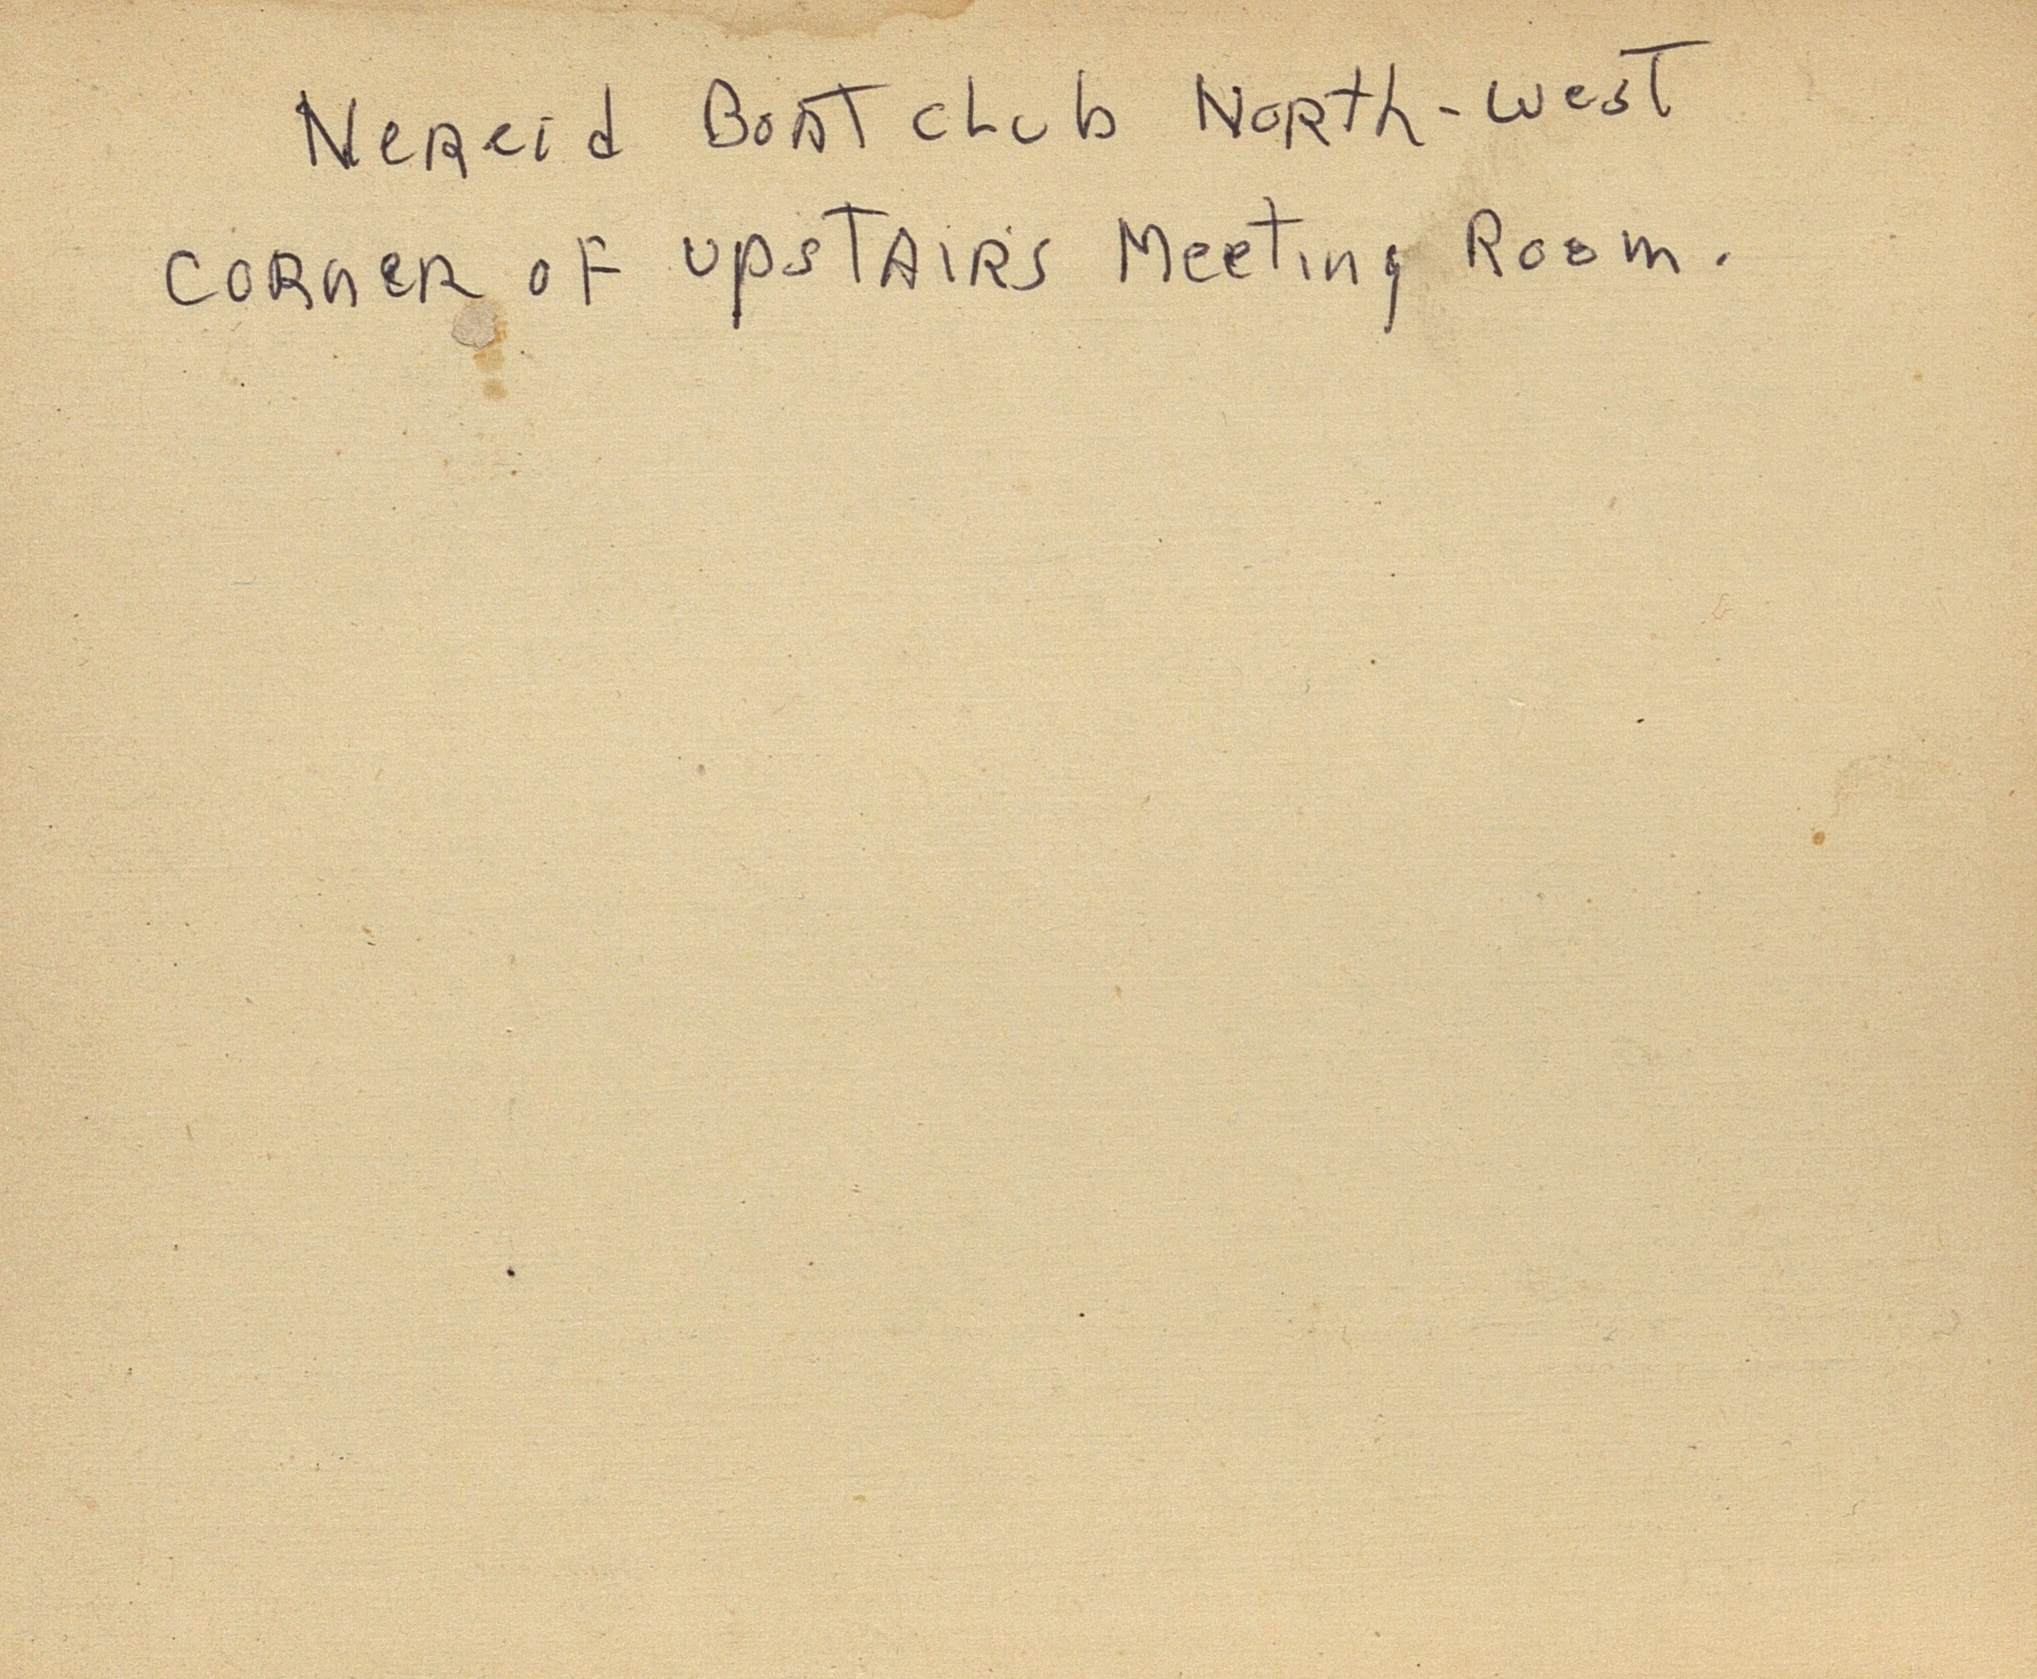 Nereid Boat club North-west
corner of upstairs Meeting Room.